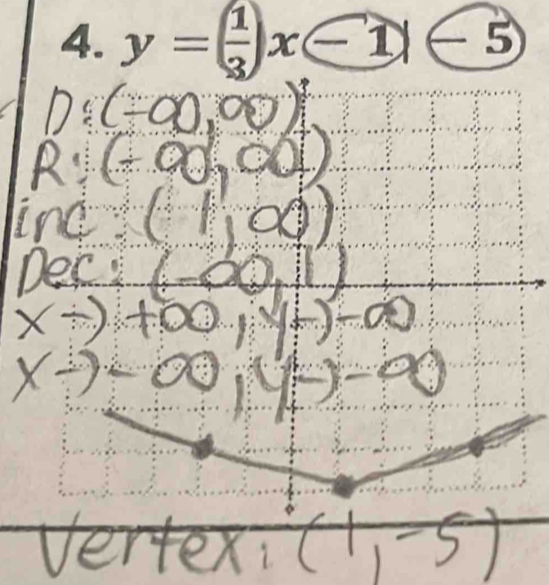 4. y = (1/3)|x - 1| - 5
D: (-∞, ∞)
R: (-∞, ∞)
inc: (1, ∞)
Dec: (-∞, 1)
x→) +∞, y→)-∞
x→)-∞, y→)-∞
Vertex: (1, -5)